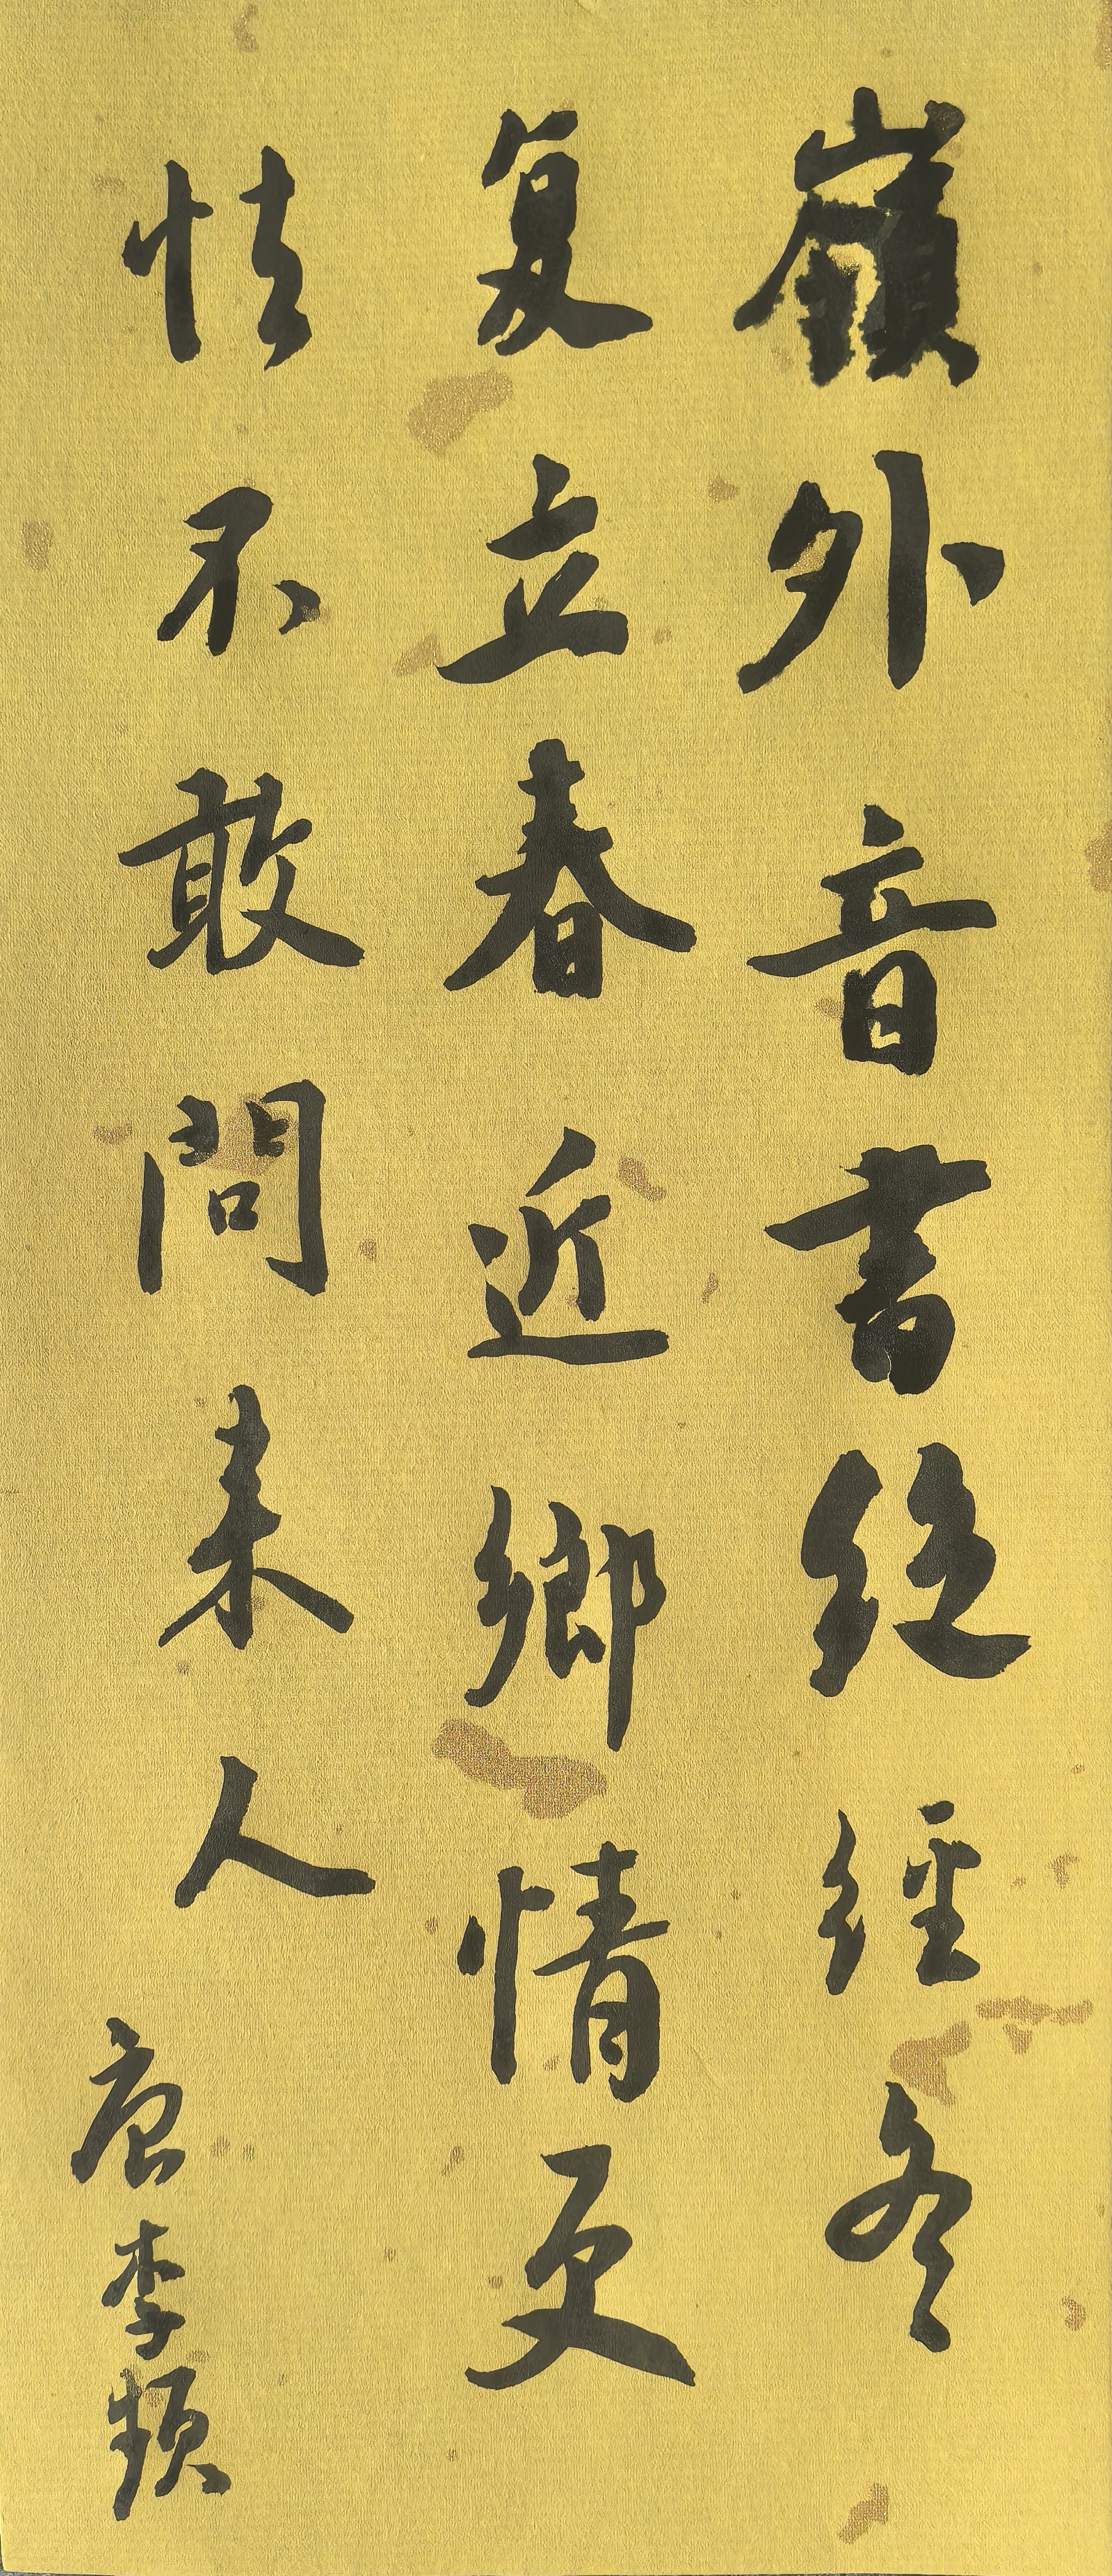 嶺外音書絕經冬
复立春近鄉情更
怯不敢問来人
唐李頻